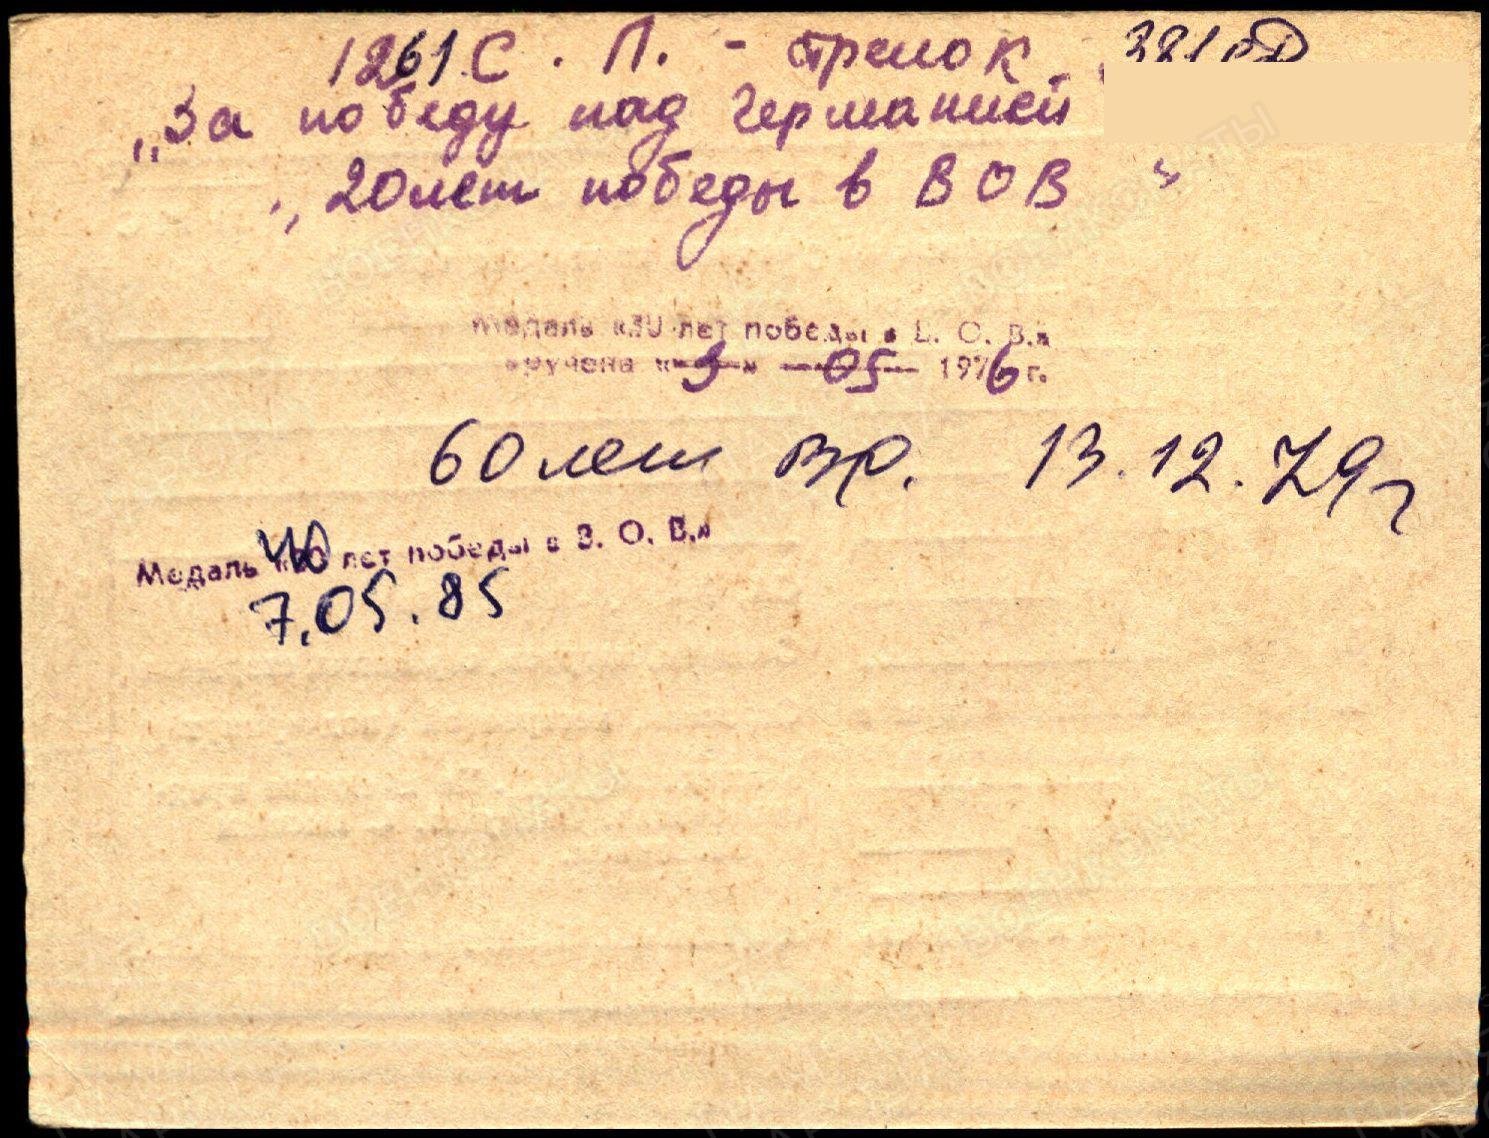 1261 С. П. - стрелок 381 сД
„За победу над Германией
„20 лет победы в ВОВ"
Медаль «30 лет победы в В. О. В.»
вручена «9» 05 1976 г.
60 лет ВР. 13.12.79 г
Медаль «40 лет победы в В. О. В.»
7.05.85